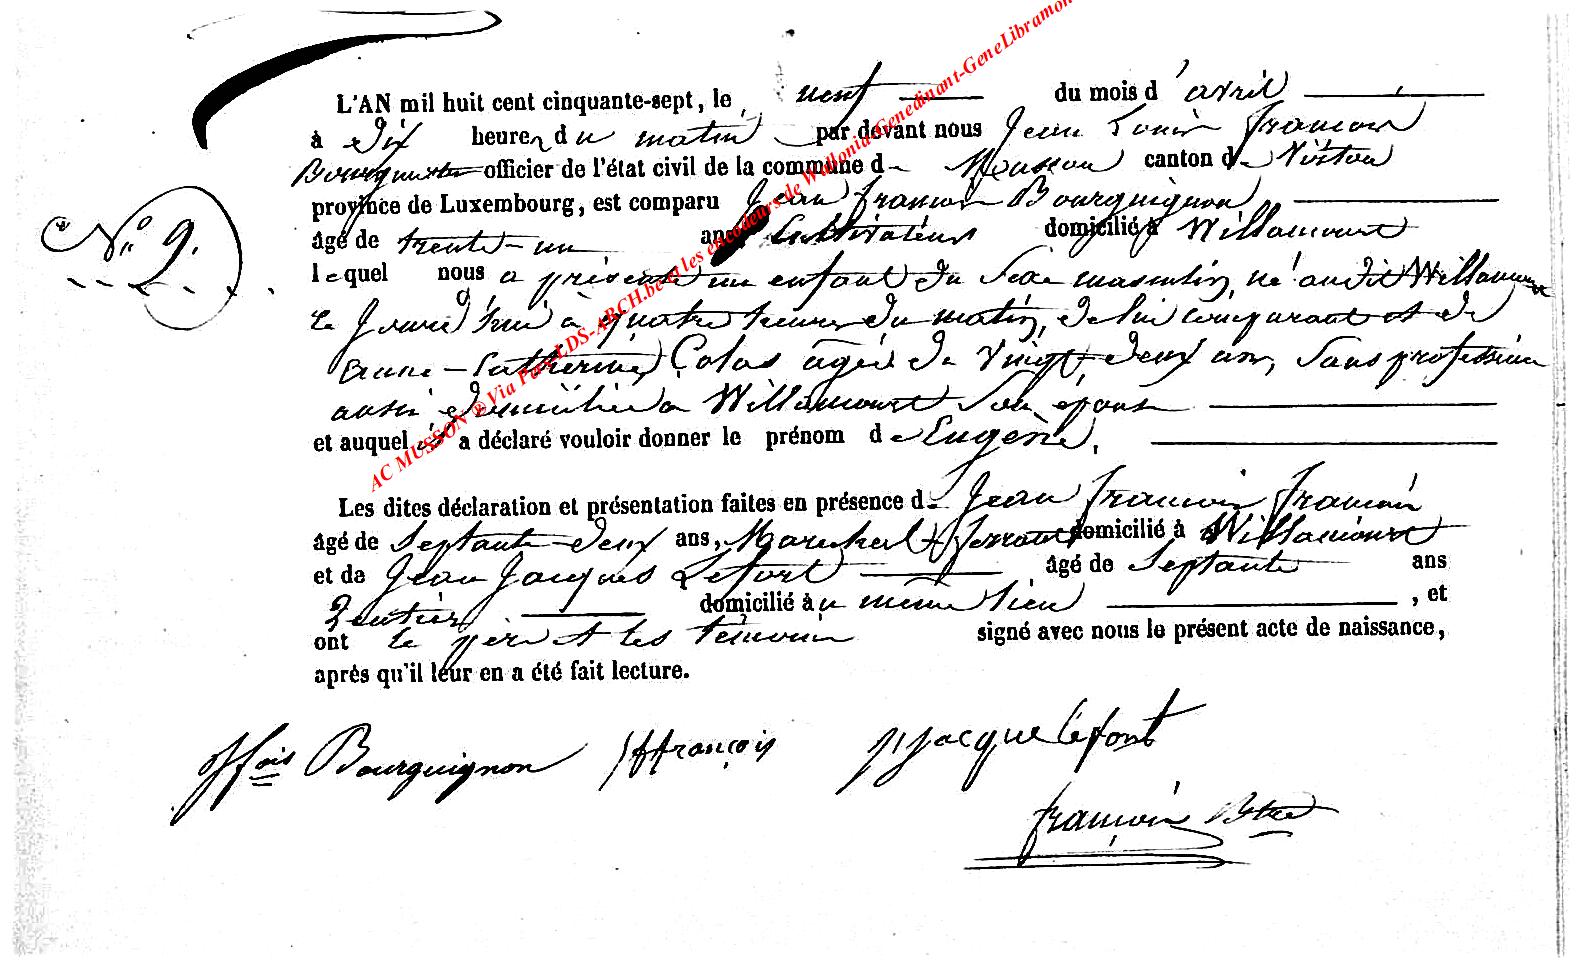 L'AN mil huit cent cinquante-sept, le neuf du mois d'avril
à dix heures du matin par devant nous Jean Louis François
officier de l'état civil de la commune de Musson canton de Virton
province de Luxembourg, est comparu Jean François Bourguignon
âgé de trente-un ans cultivateur domicilié à Willancourt
N° 9.
lequel nous a présenté un enfant du sexe masculin, né audit Willancourt
le jourd'hui à quatre heures du matin, de lui comparant et de
Anne-Catherine Colas âgée de vingt-deux ans, sans profession
aussi domiciliée à Willancourt son épouse
et auquel il a déclaré vouloir donner le prénom de Eugène.
Les dites déclaration et présentation faites en présence de Jean François François
âgé de septante-deux ans, Marechal-ferrant domicilié à Willancourt
et de Jean Jacques Lefort âgé de septante ans
Rentier domicilié au même lieu, et
ont le père et les témoins signé avec nous le présent acte de naissance,
après qu'il leur en a été fait lecture.
Jffois Bourguignon JffFrançois J Jacque lefort
françois
AC MUSSON ® Via Partx LDS-ARCH.be et les encodeurs de Wallonia-Genedinant-GeneLibramont